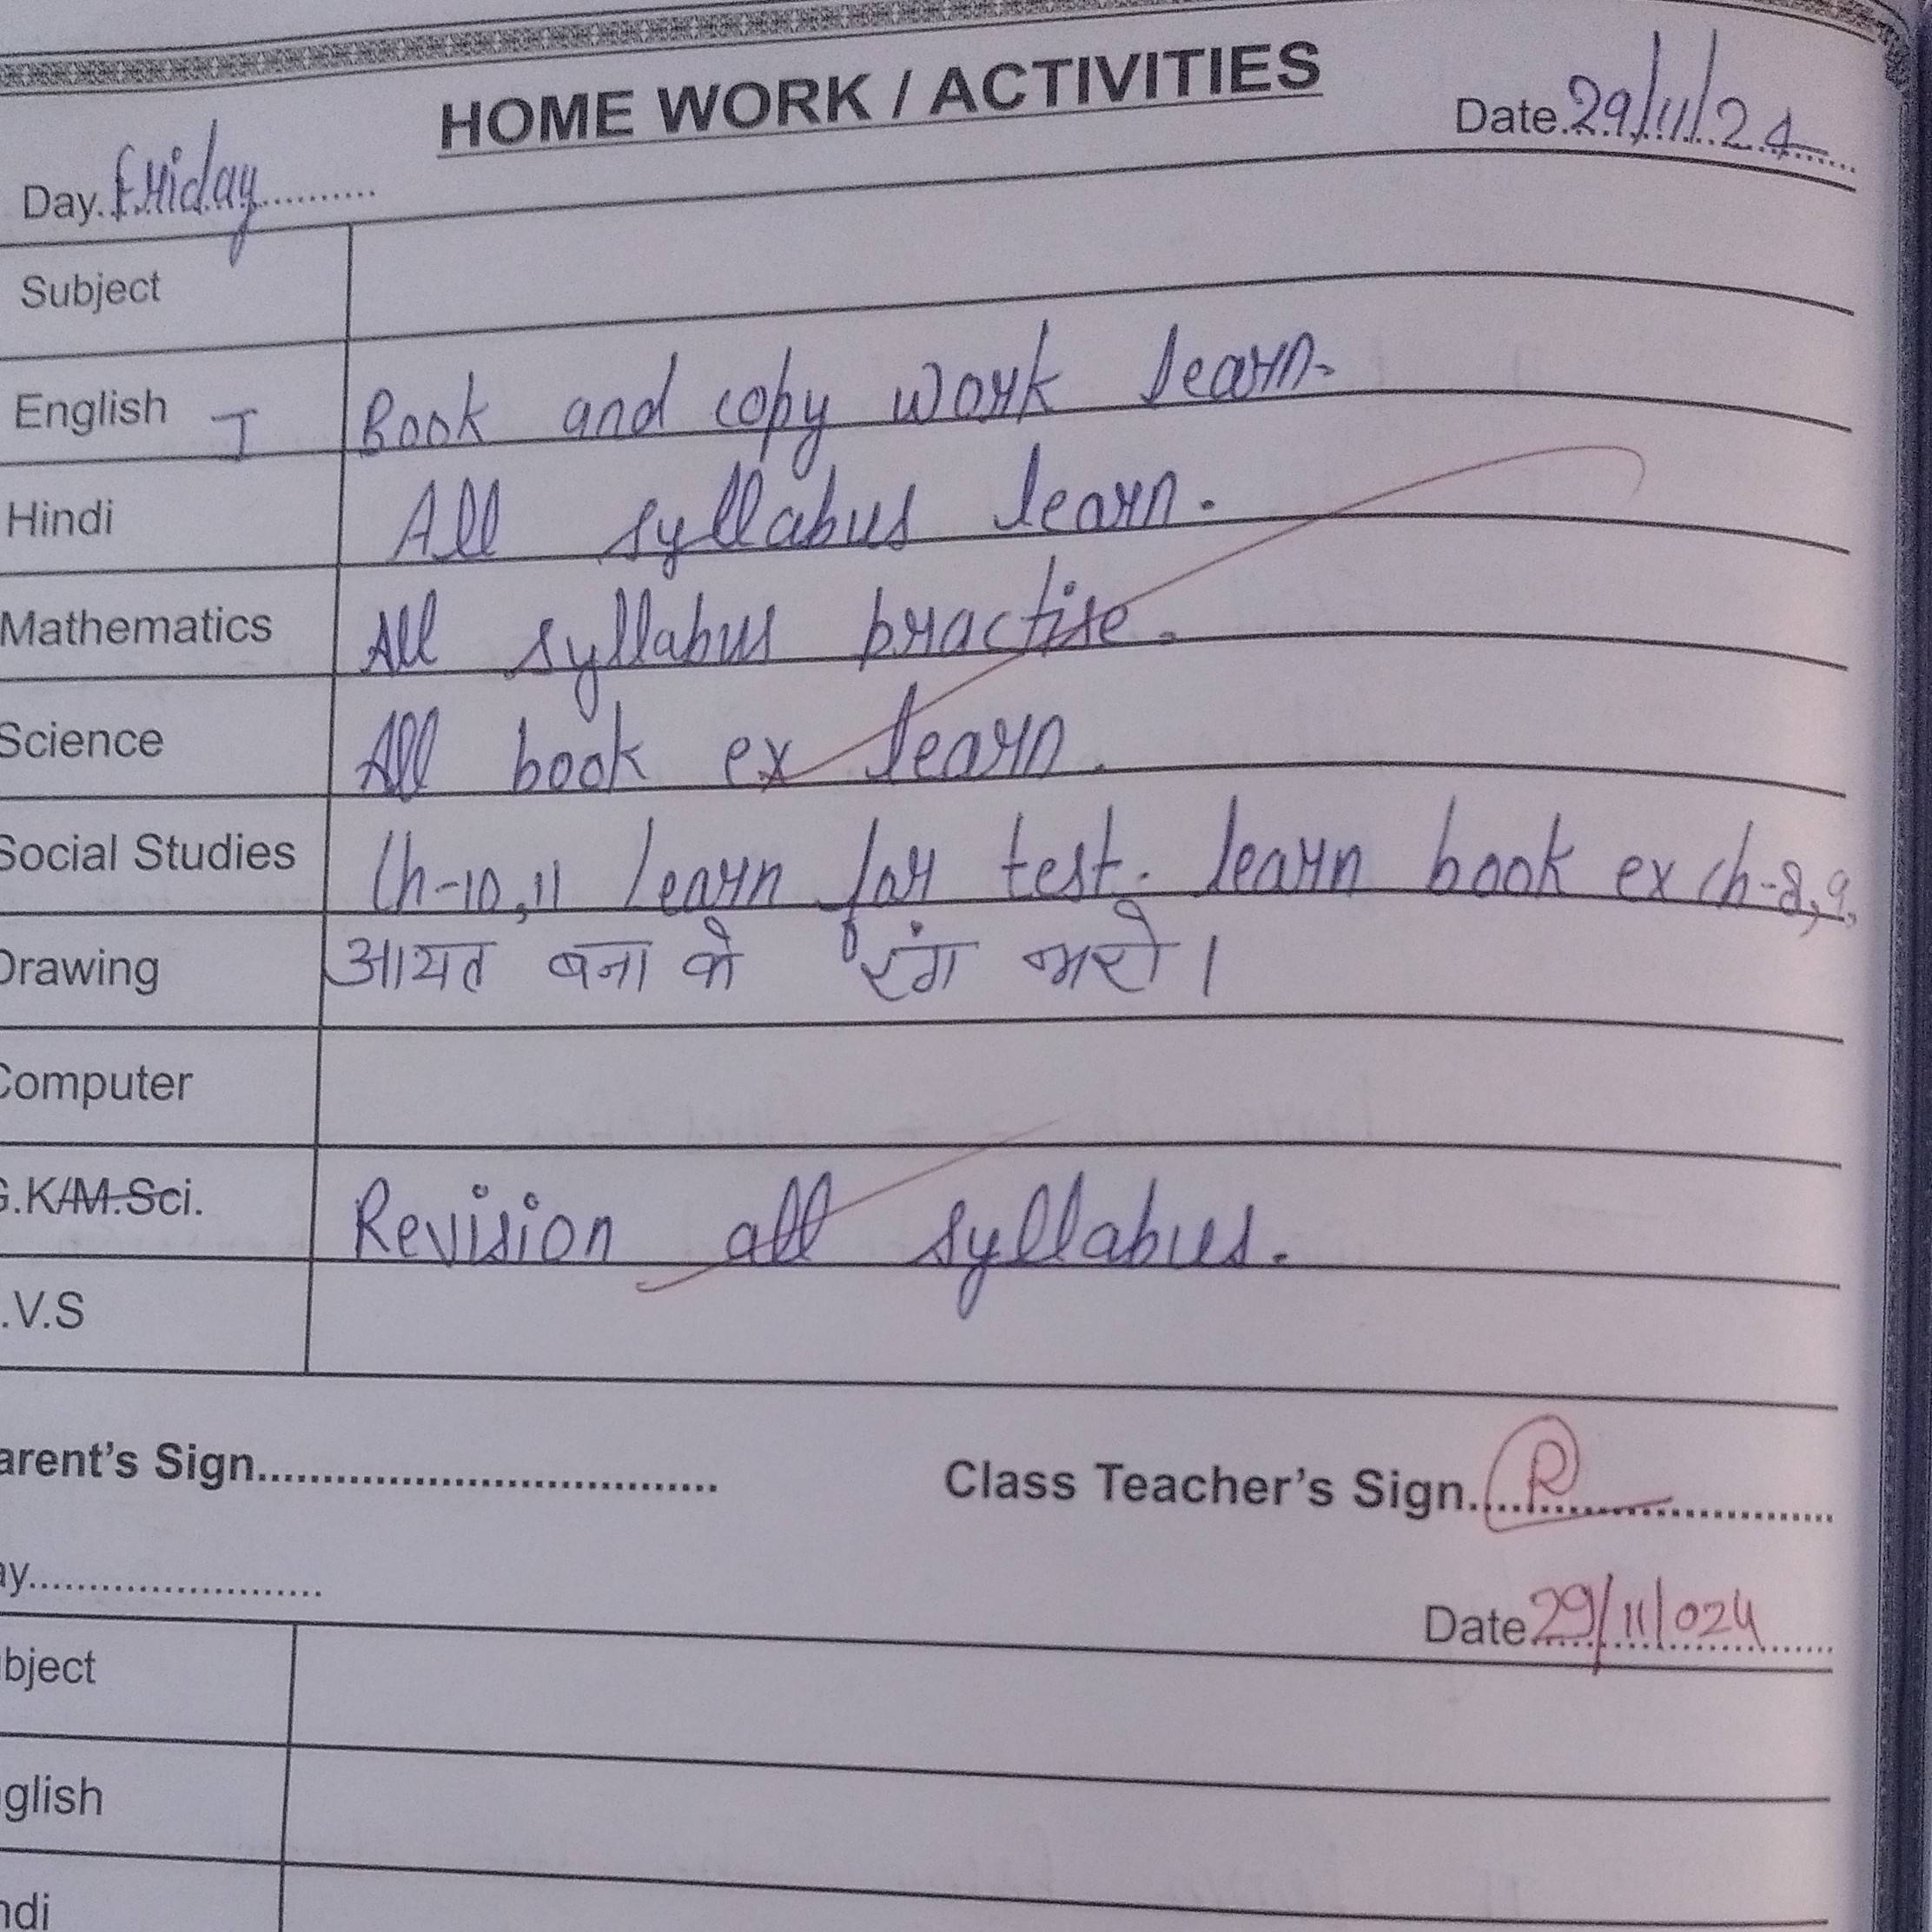 HOME WORK / ACTIVITIES
Day. Friday Date. 29/11/24
Subject
English I Book and copy work learn.
Hindi All syllabus learn.
Mathematics All syllabus practise.
Science All book ex learn.
Social Studies Ch-10,11 learn for test. learn book ex ch-8,9,
Drawing आयत बना के रंग भरो।
Computer
G.K/M.Sci. Revision all syllabus.
.V.S
arent's Sign Class Teacher's Sign R
ay
Date 29/11/024
bject
glish
ndi